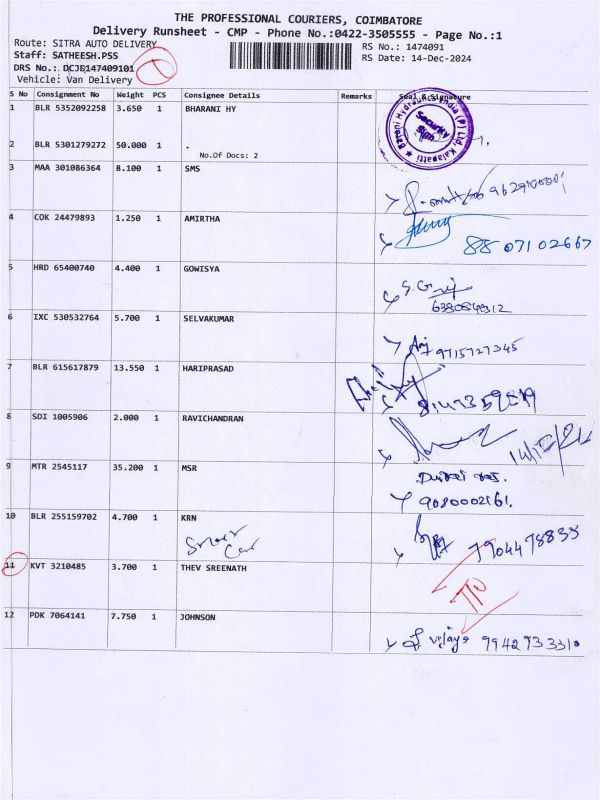 THE PROFESSIONAL COURIERS, COIMBATORE
Delivery Runsheet - CMP - Phone No.:0422-3505555 - Page No.:1
Route: SITRA AUTO DELIVERY
RS No.: 1474091
Staff: SATHEESH.PSS
RS Date: 14-Dec-2024
DRS No.: DCJB147409101
Vehicle: Van Delivery
S No Consignment No Weight PCS Consignee Details Remarks Seal & Signature
1 BLR 5352092258 3.650 1 BHARANI HY
Barani Hydraulics India (P) Ltd, Kalapatti
Security
Sign
2 BLR 5301279272 50.000 1 .
No.Of Docs: 2
3 MAA 301086364 8.100 1 SMS
4 COK 24479893 1.250 1 AMIRTHA
88 07102667
5 HRD 65400740 4.400 1 GOWISYA
6 IXC 530532764 5.700 1 SELVAKUMAR
9715727345
7 BLR 615617879 13.550 1 HARIPRASAD
8 SDI 1005906 2.000 1 RAVICHANDRAN
9 MTR 2545117 35.200 1 MSR
9080002161.
10 BLR 255159702 4.700 1 KRN
7904478835
11 KVT 3210485 3.700 1 THEV SREENATH
12 PDK 7064141 7.750 1 JOHNSON
9942933310